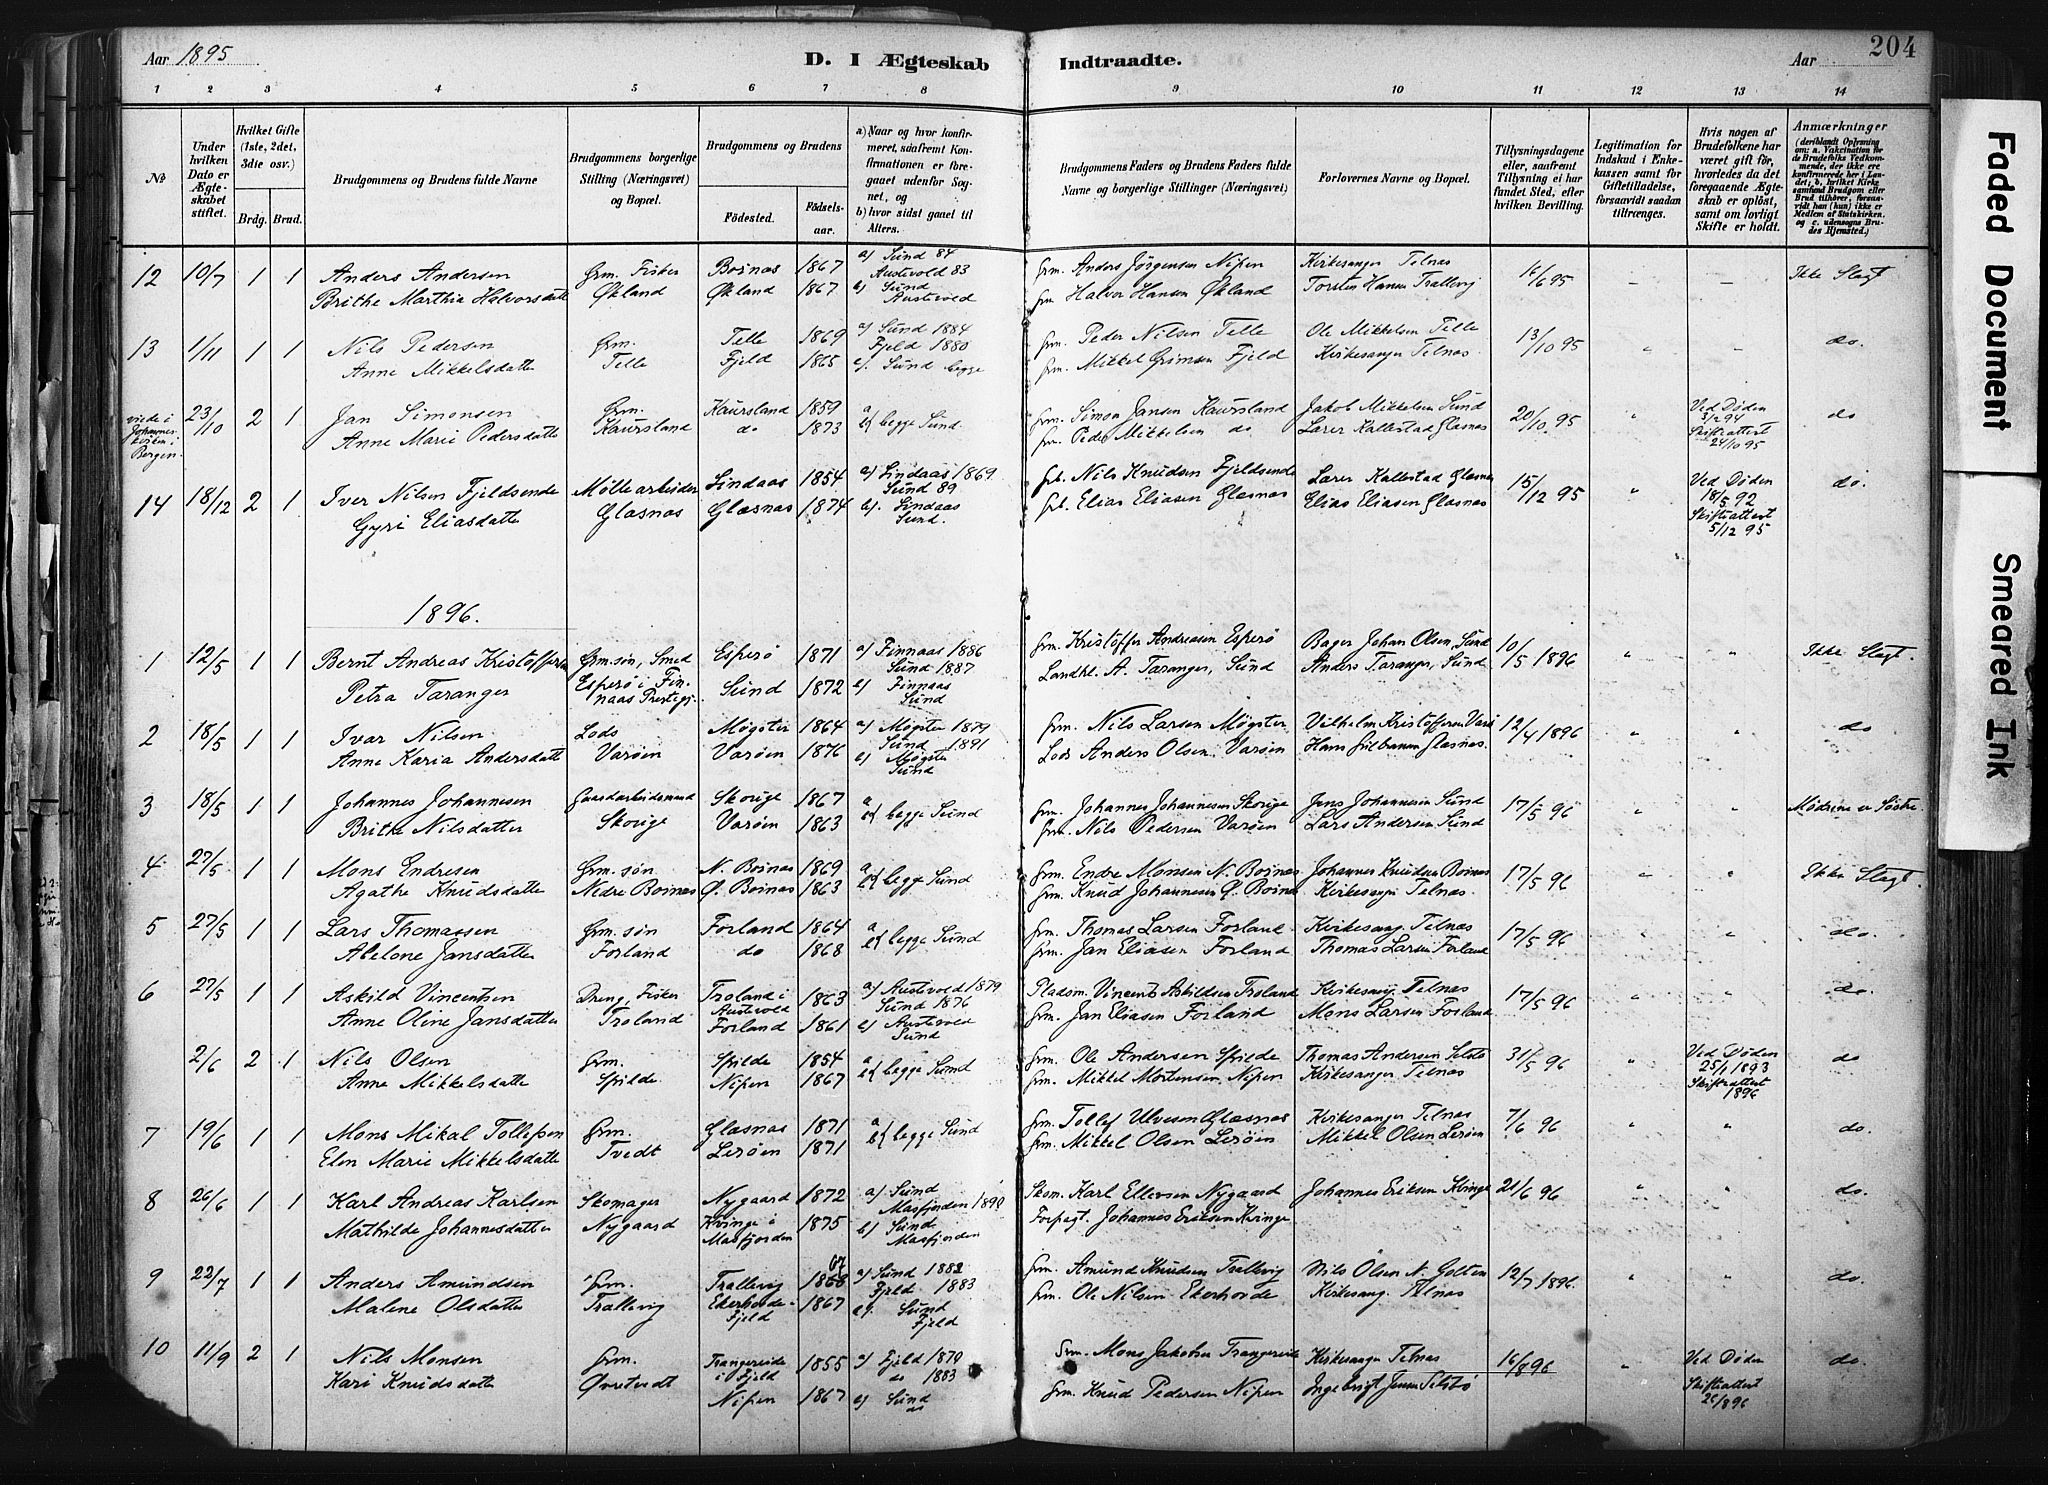 Aar 1895
D. I Ægteskab Indtraadte.
Aar
204
1 2 3 4 5 6 7 8 9 10 11 12 13 14
No
Under hvilken Dato er Ægteskabet stiftet.
Hvilket Gifte (1ste, 2det, 3die osv.)
Brdg. Brud.
Brudgommens og Brudens fulde Navne
Brudgommens borgerlige Stilling (Næringsvei) og Bopæl.
Brudgommens og Brudens
Fødested. Fødselsaar.
a) Naar og hvor konfirmeret, saafremt Konfirmationen er foregaaet udenfor Sognet, og
b) hvor sidst gaaet til Alters.
Brudgommens Faders og Brudens Faders fulde Navne og borgerlige Stillinger (Næringsvei)
Forlovernes Navne og Bopæl.
Tillysningsdagene eller, saafremt Tillysning ei har fundet Sted, efter hvilken Bevilling.
Legitimation for Indskud i Enkekassen samt for Giftetilladelse, forsaavidt saadan tiltrænges.
Hvis nogen af Brudefolkene har været gift før, hvorledes da det foregaaende Ægteskab er opløst, samt om lovligt Skifte er holdt.
Anmærkninger (deriblandt Oplysning om: a. Vakcination for de Brudefolks Vedkommende, der ikke ere konfirmerede her i Landet, b. hvilket Kirkesamfund Brudgom eller Brud tilhører, forsaavidt han (hun) ikke er Medlem af Statskirken, og c. udensogns Brudes Hjemsted.)
12 10/7 1 1 Anders Andersen Grm. Fisker Boinæs 1867 a) Sund 84 Grm. Anders Jörgensen Nipen Kirkesanger Telnæs 16/6 95 - - Ikke Slægt
Brithe Marthia Halvorsdatter Økland Økland 1867 Austevold 83 Grm Halvor Hansen Økland Torsten Hansen Trællevig
b) Sund Austevold
13 1/11 1 1 Nils Pedersen Grm. Telle 1869 a) Sund 1884 Grm. Peder Nilsen Telle Ole Mikkelsen Telle 13/10 95 " - do.
Anne Mikkelsdatter Telle Fjeld 1865 Fjeld 1880 Grm. Mikkel Grimsen Fjeld Kirkesanger Telnæs
b). Sund begge
viede i Johanneskirken i Bergen. 23/10 2 1 Jan Simonsen Grm. Kaursland 1859 a b} begge Sund. Grm. Simon Jansen Kaursland Jakob Mikkelsen Sund 20/10. 95 " Ved Døden 3/2 94 do
Anne Marie Pedersdatter Kaursland do 1873 Grm. Peder Mikkelsen do Lærer Kallestad Glæsnæs Skifteattest 24/10 95
14 18/12 2 1 Iver Nilsen Fjeldsende Møllearbeider Lindaas 1854 a) Lindaas 1869. Grb. Nils Knudsen Fjeldsende Lærer Kallestad Glæsnæs 15/12 95 " Ved Døden 18/5 92 do.
Gyri Eliasdatter Glæsnæs Glæsnæs 1874 Sund 89 Grb. Elias Eliasen Glæsnæs Elias Eliasen Glæsnæs Skifteattest 5/12 95
b). Lindaas Sund.
1896.
1 12/5 1 1 Bernt Andreas Kristoffersen Grm.søn, Smed Esperø 1871 a) Finnaas 1886 Grm. Kristoffer Andreasen Esperø Bager Johan Olsen, Sund 10/5 1896 " " Ikke Slægt.
Petra Taranger Esperø i Finnaas Prestegj. Sund 1872 Sund 1887 Landhl. A. Taranger, Sund Anders Taranger, Sund
b) Finnaas Sund
2 18/5 1 1 Ivar Nilsen Lods Møgster 1864 a) Møgster 1879 Grm. Nils Larsen Møgster Vilhelm Kristoffersen Varø 12/4 1896 " " do
Anne Karia Andersdatter Varøen Varøen 1876 Sund 1891 Lods Anders Olsen Varøen Glæsnæs.
b) Møgster Sund
3 18/5 1 1 Johannes Johannesen Gaardarbeidsmand Skorge 1867 a b} begge Sund Grm. Johannes Johannesen Skorge Jens Johannesen Sund 17/5 96 " " Mødrene er Søstre.
Brithe Nilsdatter Skorge Varøen 1863 Grm. Nils Pedersen Varøen Lars Andersen Sund
4 27/5 1 1 Mons Endresen Grm. søn N. Boinæs 1869 a b} begge Sund Grm. Endre Monsen N. Boinæs Johannes Knudsen Boinæs 17/5 96 " " Ikke Slægt.
Agathe Knudsdatter Nedre Boinæs Ø. Boinæs 1863 Grm. Knud Johannesen Ø. Boinæs Kirkesanger Telnæs
5 27/5 1 1 Lars Thomassen Grm. søn Forland 1864 a b} begge Sund Grm. Thomas Larsen Forland Kirkesang. Telnæs 17/5 96 " " do.
Abelone Jansdatter Forland do 1868 Grm. Jan Eliasen Forland Thomas Larsen Forland
6 27/5 1 1 Askild Vincentsen Dreng, Fisker Troland i Austevold 1863 a) Austevold 1879 Pladsm. Vincents Askildsen Troland Kirkesang. Telnæs 17/5 96 " " do.
Anne Oline Jansdatter Troland Forland 1861 Sund 1876 Grm. Jan Eliasen Forland Mons Larsen Forland
b) Austevold Sund
2/6 2 1 Nils Olsen Grm. Spilde 1854 a b} begge Sund Grm. Ole Andersen Spilde Thomas Andersen Selstø 31/5 96 " Ved Døden 25/1 1893 do
Anne Mikkelsdatter Spilde Nipen 1867 Grm. Mikkel Mortensen Nipen Kirkesanger Telnæs Skifteattest 1896
7 19/6 1 1 Mons Mikal Tollefsen Grm. Glæsnæs 1871 a b} begge Sund Grm. Tollef Ulvesen Glæsnæs Kirkesanger Telnæs 7/6 96 " " do.
Elen Marie Mikkelsdatter Tvedt Lerøen 1871 Grm. Mikkel Olsen Lerøen Mikkel Olsen Lerøen
8 26/6 1 1 Karl Andreas Karlsen Skomager Nygaard 1872 a) Sund Skom. Karl Ellevsen Nygaard Johannes Eriksen Kvinge 21/6 96 " " do.
Mathilde Johannesdatter Nygaard Kvinge i Masfjorden 1875 Masfjorden 1890 Forpagt. Johannes Eriksen Kvinge
b) Sund Masfjorden
9 22/7 1 1 Anders Amundsen Grm. Trællevig 1868 67 a) Sund 1882 Grm. Amund Knudsen Trællevig Nils Olsen N. Golten 12/7 1896 " " do.
Malene Olsdatter Trællevig Ekerhovde Fjeld 1867 Fjeld 1883 Grm. Ole Nilsen Ekerhovde Kirkesang. Telnæs
b). Sund Fjeld
10 11/9 2 1 Nils Monsen Grm. Trangereide i Fjeld 1855 a) Fjeld 1870 Grm. Mons Jakobsen Trangereide Kirkesanger Telnæs 16/8 96 " Ved Døden do.
Kari Knudsdatter Øvretvedt Nipen 1867 do 1883 Grm. Knud Pedersen Nipen Ingebrigt Jensen Selstø Skifteattest
b) Sund
Faded Document
Smeared Ink